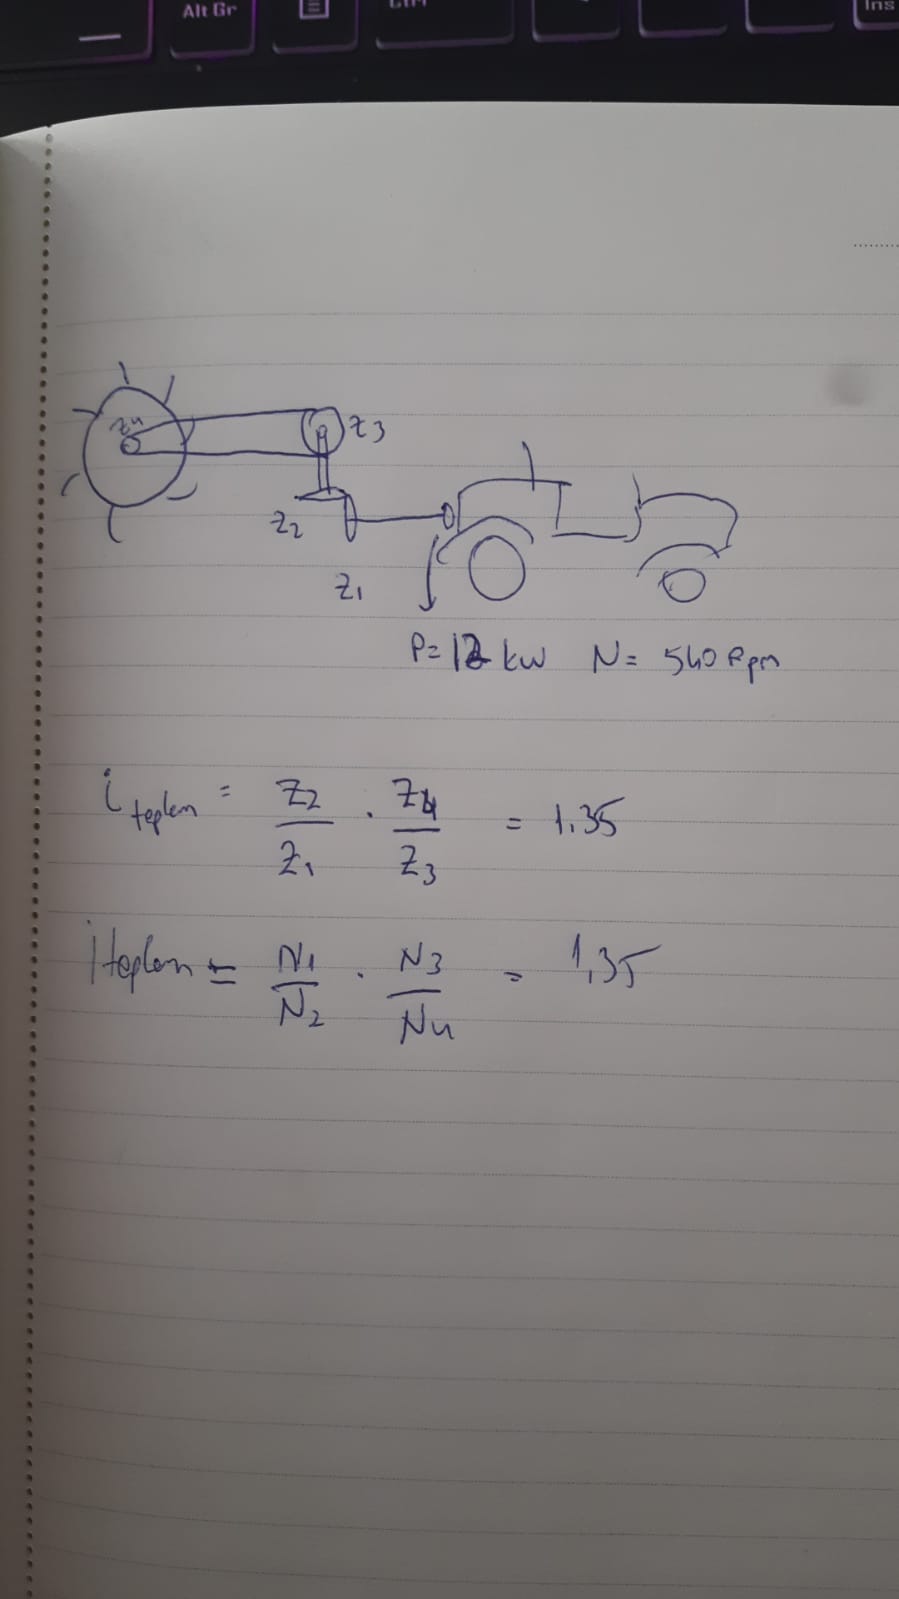 Alt Gr
Ctrl
Ins
Z4
Z3
Z2
Z1
P= 12 kw N= 540 Rpm
i toplam = Z2/Z1 . Z4/Z3 = 1.35
i toplam = N1/N2 . N3/N4 = 1,35